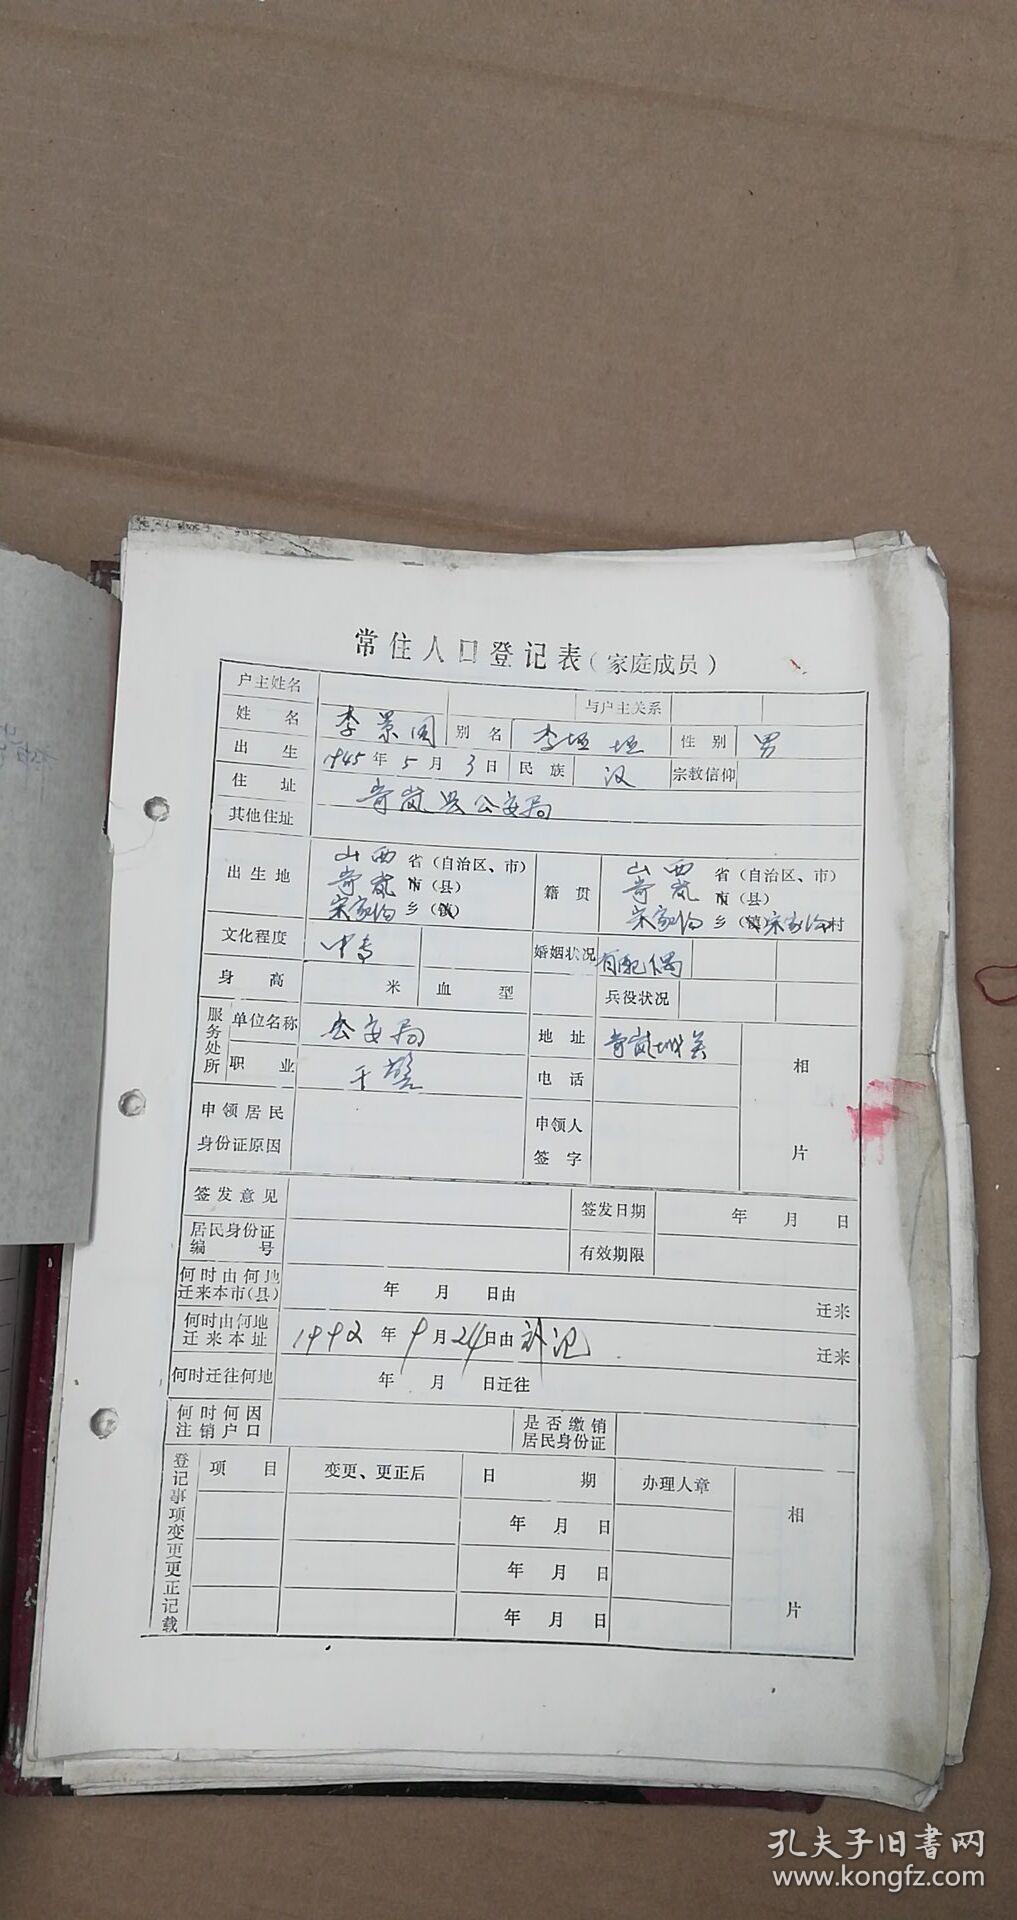 常住人口登记表（家庭成员）
户主姓名 与户主关系
姓名 李景周 别名 李垣垣 性别 男
出生 1945年5月3日 民族 汉 宗教信仰
住址 岢岚县公安局
其他住址
出生地 山西省（自治区、市） 岢岚市（县） 宋家沟乡（镇） 籍贯 山西省（自治区、市） 岢岚市（县） 宋家沟乡（镇）宋家沟村
文化程度 中专 婚姻状况 有配偶
身高 米 血型 兵役状况
服务处所 单位名称 公安局 地址 岢岚城关 相片
职业 干警 电话
申领居民身份证原因 申领人签字
签发意见 签发日期 年 月 日
居民身份证编号 有效期限
何时由何地迁来本市（县） 年 月 日由 迁来
何时由何地迁来本址 1992年9月24日由 补记 迁来
何时迁往何地 年 月 日迁往
何时何因注销户口 是否缴销居民身份证
登记事项变更更正记载 项目 变更、更正后 日期 办理人章 相片
年 月 日
年 月 日
年 月 日
孔夫子旧书网
www.kongfz.com